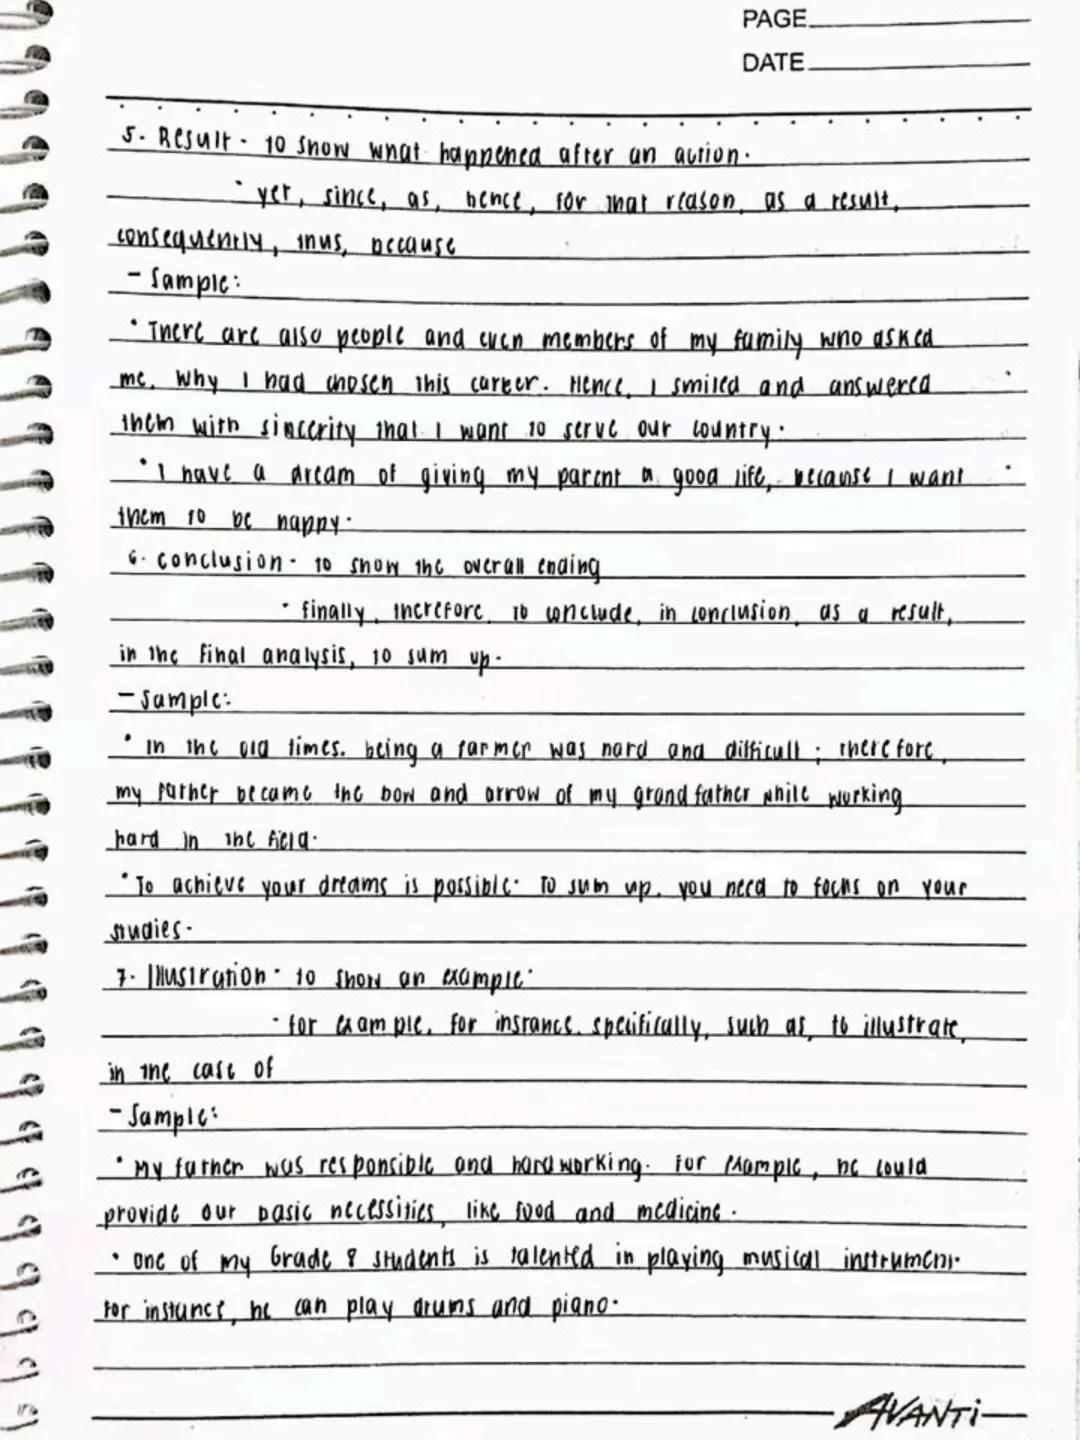 PAGE
DATE
5. Result - to show what happened after an action.
• yet, since, as, hence, for that reason, as a result,
consequently, thus, because
- Sample:
• There are also people and even members of my family who asked
me, why I had chosen this career. Hence, I smiled and answered
them with sincerity that I want to serve our country.
• I have a dream of giving my parent a good life, because I want
them to be happy.
6. Conclusion - to show the overall ending
• finally, therefore, to conclude, in conclusion, as a result,
in the final analysis, to sum up.
- Sample:
• In the old times, being a farmer was hard and difficult; therefore,
my father became the bow and arrow of my grandfather while working
hard in the field.
• To achieve your dreams is possible. To sum up, you need to focus on your
studies.
7. Illustration - to show an example.
- for example, for instance, specifically, such as, to illustrate,
in the case of
- Sample:
• My father was responsible and hardworking. For example, he could
provide our basic necessities, like food and medicine.
• One of my Grade 8 students is talented in playing musical instrument.
For instance, he can play drums and piano.
AVANTi